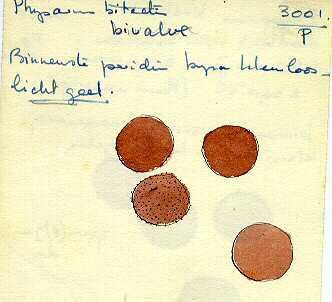 Physarum bitectum 3001
bivalve P
Binnenste peridie bijna kleurloos-
licht geel.